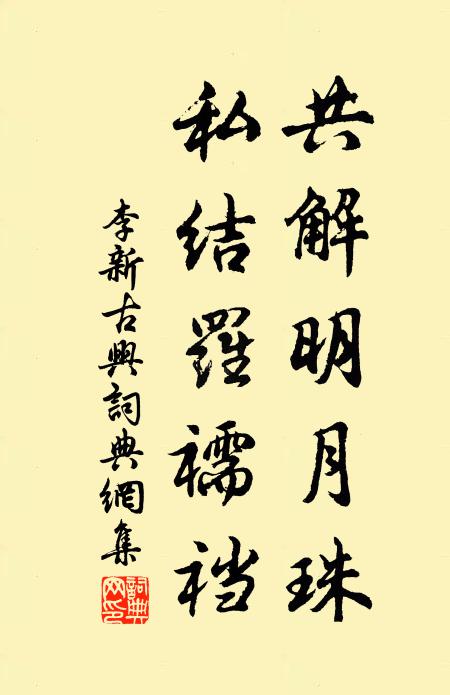 共解明月珠
私结羅襦裆
李新古典詞典網集
詞典網印